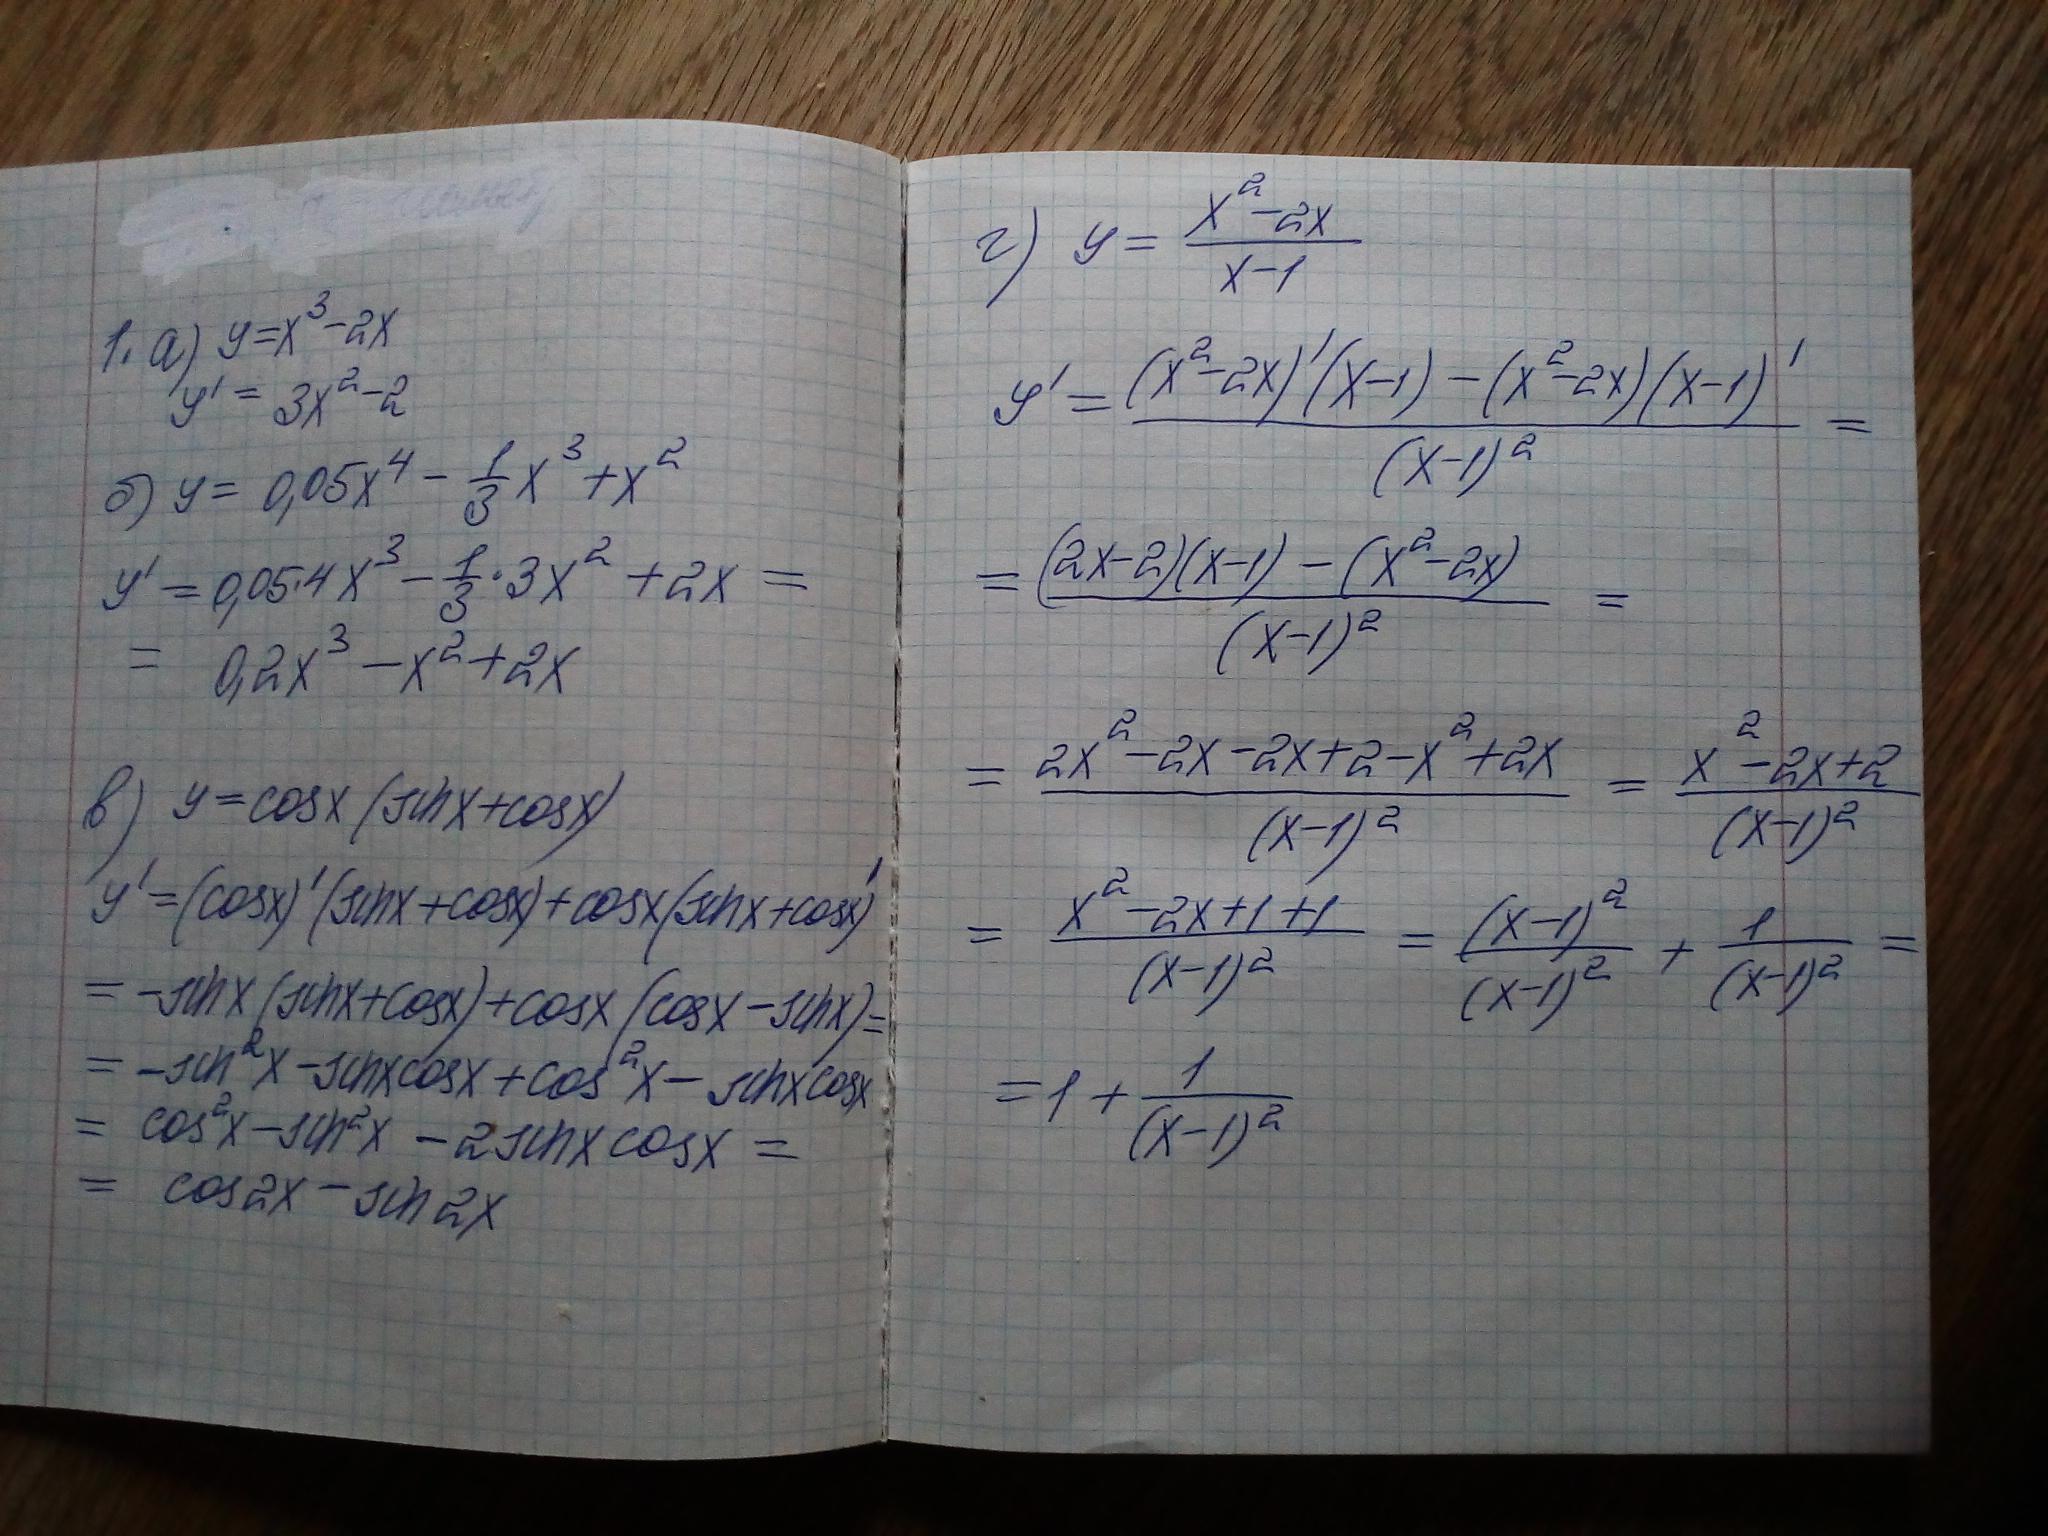 1. а) y = x³ - 2x
y' = 3x² - 2
б) y = 0,05x⁴ - 1/3 x³ + x²
y' = 0,05·4x³ - 1/3 · 3x² + 2x =
= 0,2x³ - x² + 2x
в) y = cosx (sinx + cosx)
y' = (cosx)' (sinx + cosx) + cosx (sinx + cosx)'
= -sinx (sinx + cosx) + cosx (cosx - sinx) =
= -sin²x - sinxcosx + cos²x - sinxcosx
= cos²x - sin²x - 2sinx cosx =
= cos2x - sin2x
г) y = (x² - 2x)/(x - 1)
y' = ((x² - 2x)'(x - 1) - (x² - 2x)(x - 1)')/(x - 1)² =
= ((2x - 2)(x - 1) - (x² - 2x))/(x - 1)² =
= (2x² - 2x - 2x + 2 - x² + 2x)/(x - 1)² = (x² - 2x + 2)/(x - 1)²
= (x² - 2x + 1 + 1)/(x - 1)² = (x - 1)²/(x - 1)² + 1/(x - 1)² =
= 1 + 1/(x - 1)²